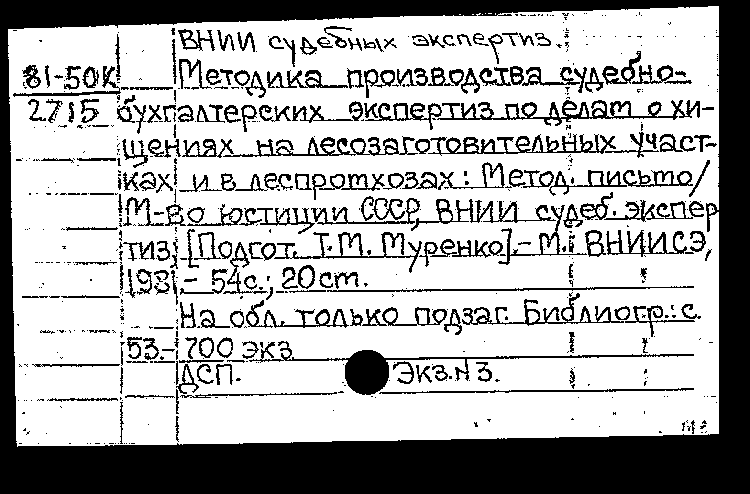 ВНИИ судебных экспертиз.
81-50К Методика производства судебно-
2715 бухгалтерских экспертиз по делам о хи-
щениях на лесозаготовительных участ-
ках и в леспромхозах: Метод. письмо/
М-во юстиции СССР, ВНИИ судеб. экспер
тиз; [Подгот. Т.М. Муренко].- М.: ВНИИСЭ,
1981.- 54с.; 20 см.
На обл. только подзаг. Библиогр.: с.
53.- 700 экз
ДСП. Экз.N 3.